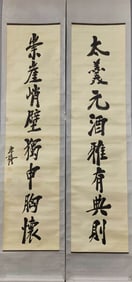 太羹元酒雅有典則
崇崖峭壁獨申胸懷